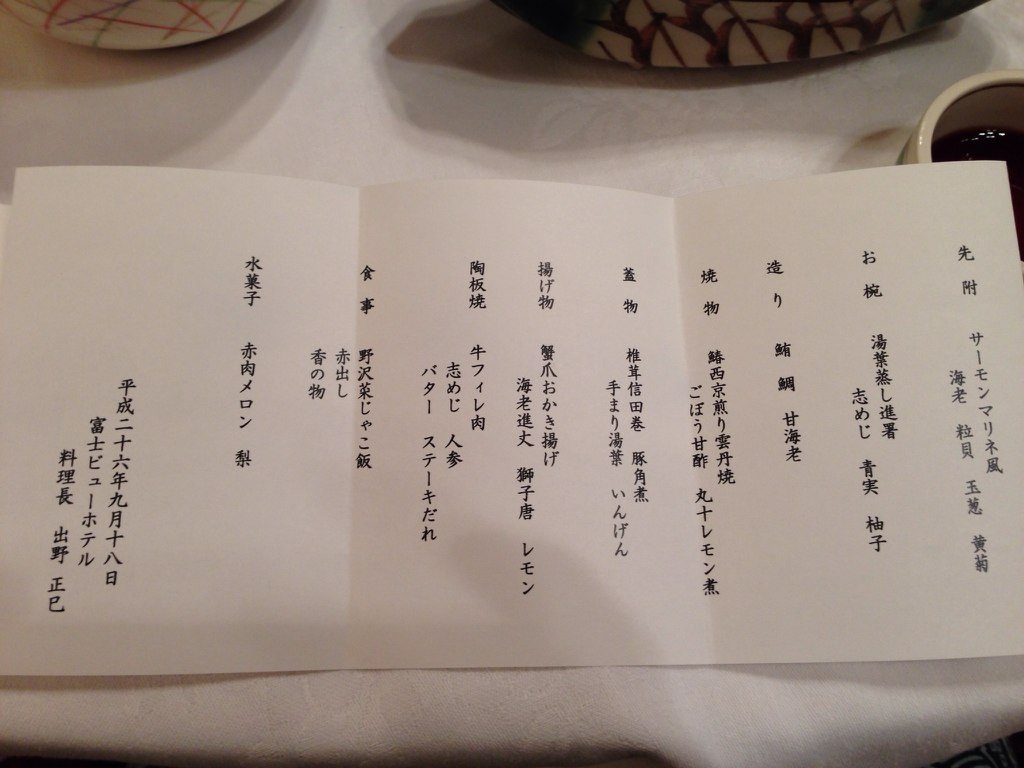 先附　サーモンマリネ風
海老　粒貝　玉葱　黄菊
お椀　湯葉蒸し進署
志めじ　青実　柚子
造り　鮪　鯛　甘海老
焼物　鰆西京煎り雲丹焼
ごぼう甘酢　丸十レモン煮
蓋物　椎茸信田巻　豚角煮
手まり湯葉　いんげん
揚げ物　蟹爪おかき揚げ
海老進丈　獅子唐　レモン
陶板焼　牛フィレ肉
志めじ　人参
バター　ステーキだれ
食事　野沢菜じゃこ飯
赤出し
香の物
水菓子　赤肉メロン　梨
平成二十六年九月十八日
富士ビューホテル
料理長　出野　正巳